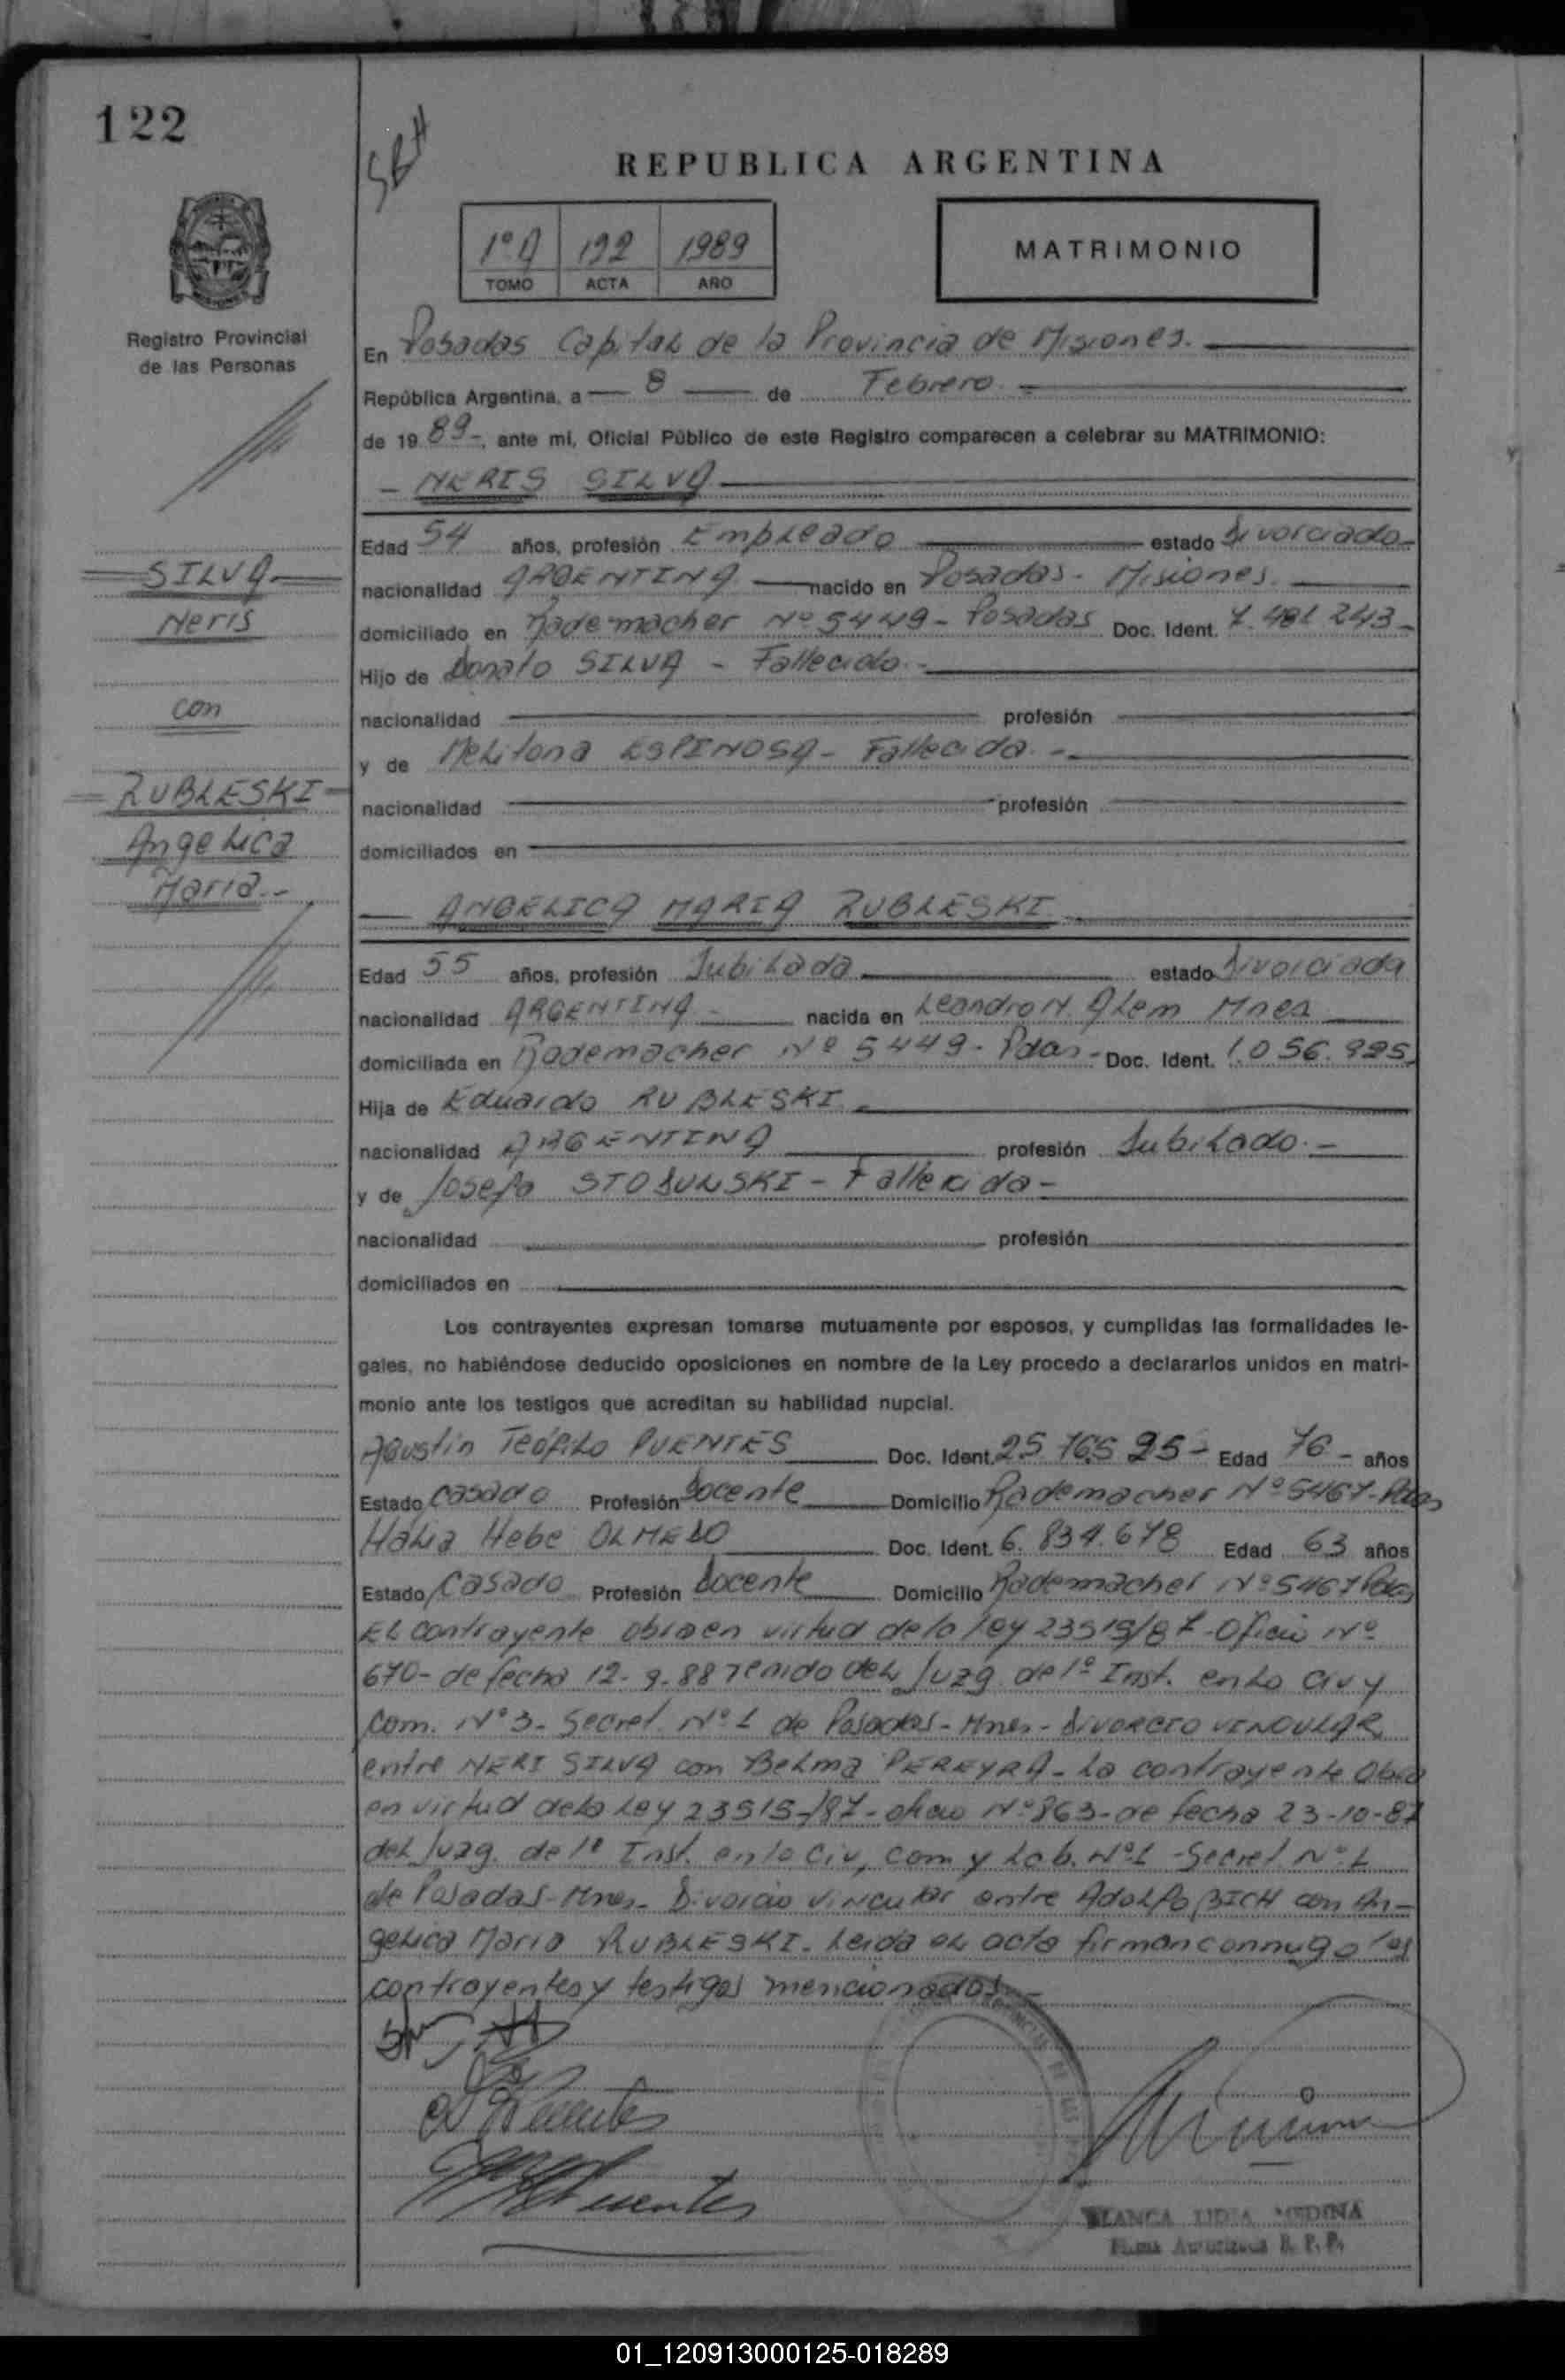 122
REPUBLICA ARGENTINA
1º A 122 1989
TOMO ACTA AÑO
MATRIMONIO
Registro Provincial
de las Personas
En Posadas Capital de la Provincia de Misiones.
República Argentina, a 8 de Febrero
de 1989-, ante mi, Oficial Público de este Registro comparecen a celebrar su MATRIMONIO:
- NERIS SILVA
SILVA
Neris
con
RUBLESKI
Angelica
Maria.-
Edad 54 años, profesión Empleado estado Divorciado-
nacionalidad ARGENTINA nacido en Posadas - Misiones.
domiciliado en Rademacher Nº 5449 - Posadas Doc. Ident. 7.481.243-
Hijo de Donato SILVA - Fallecido.-
nacionalidad profesión
y de Melitona ESPINOSA - Fallecida.-
nacionalidad profesión
domiciliados en
ANGELICA MARIA RUBLESKI
Edad 55 años, profesión Jubilada estado Divorciada
nacionalidad ARGENTINA - nacida en Leandro N. Alem Mnes
domiciliada en Rademacher Nº 5449 - Pdas - Doc. Ident. 1.056.995
Hija de Eduardo RUBLESKI -
nacionalidad ARGENTINA profesión Jubilado.-
y de Josefa - Fallecida -
nacionalidad profesión
domiciliados en
Los contrayentes expresan tomarse mutuamente por esposos, y cumplidas las formalidades le-
gales, no habiéndose deducido oposiciones en nombre de la Ley procedo a declararlos unidos en matri-
monio ante los testigos que acreditan su habilidad nupcial.
Agustin Teófilo PUENTES Doc. Ident. Edad años
Estado Casado Profesión Docente Domicilio Rademacher Nº 5467-Pdas
Halia Hebe OLMEDO Doc. Ident. 6.839.678 Edad 63 años
Estado Casado Profesión Docente Domicilio Rademacher Nº 5467 Pdas
El contrayente obra en virtud de la ley 23515/87-Oficio Nº
670- de fecha 12-9-88 del Juzg. de 1º Inst. en lo Civ y
Com. Nº 3- Secret. Nº 1 de Posadas - Mnes - DIVORCIO VINCULAR
entre NERI SILVA con Belma PEREYRA - La contrayente Obra
en virtud de la Ley 23515-/87 - oficio Nº 863- de fecha 23-10-87
del Juzg. de 1º Inst. en lo Civ, Com y Lab. Nº 1 - Secret Nº 1
de Posadas - Mnes - Divorcio Vincular entre Adolfo BICH con An-
gelica Maria RUBLESKI. Leida el acta firman conmigo los
contrayentes y testigos mencionados.-
BLANCA LIDIA MEDINA
Firma Autorizada R. P. P.
01_120913000125-018289